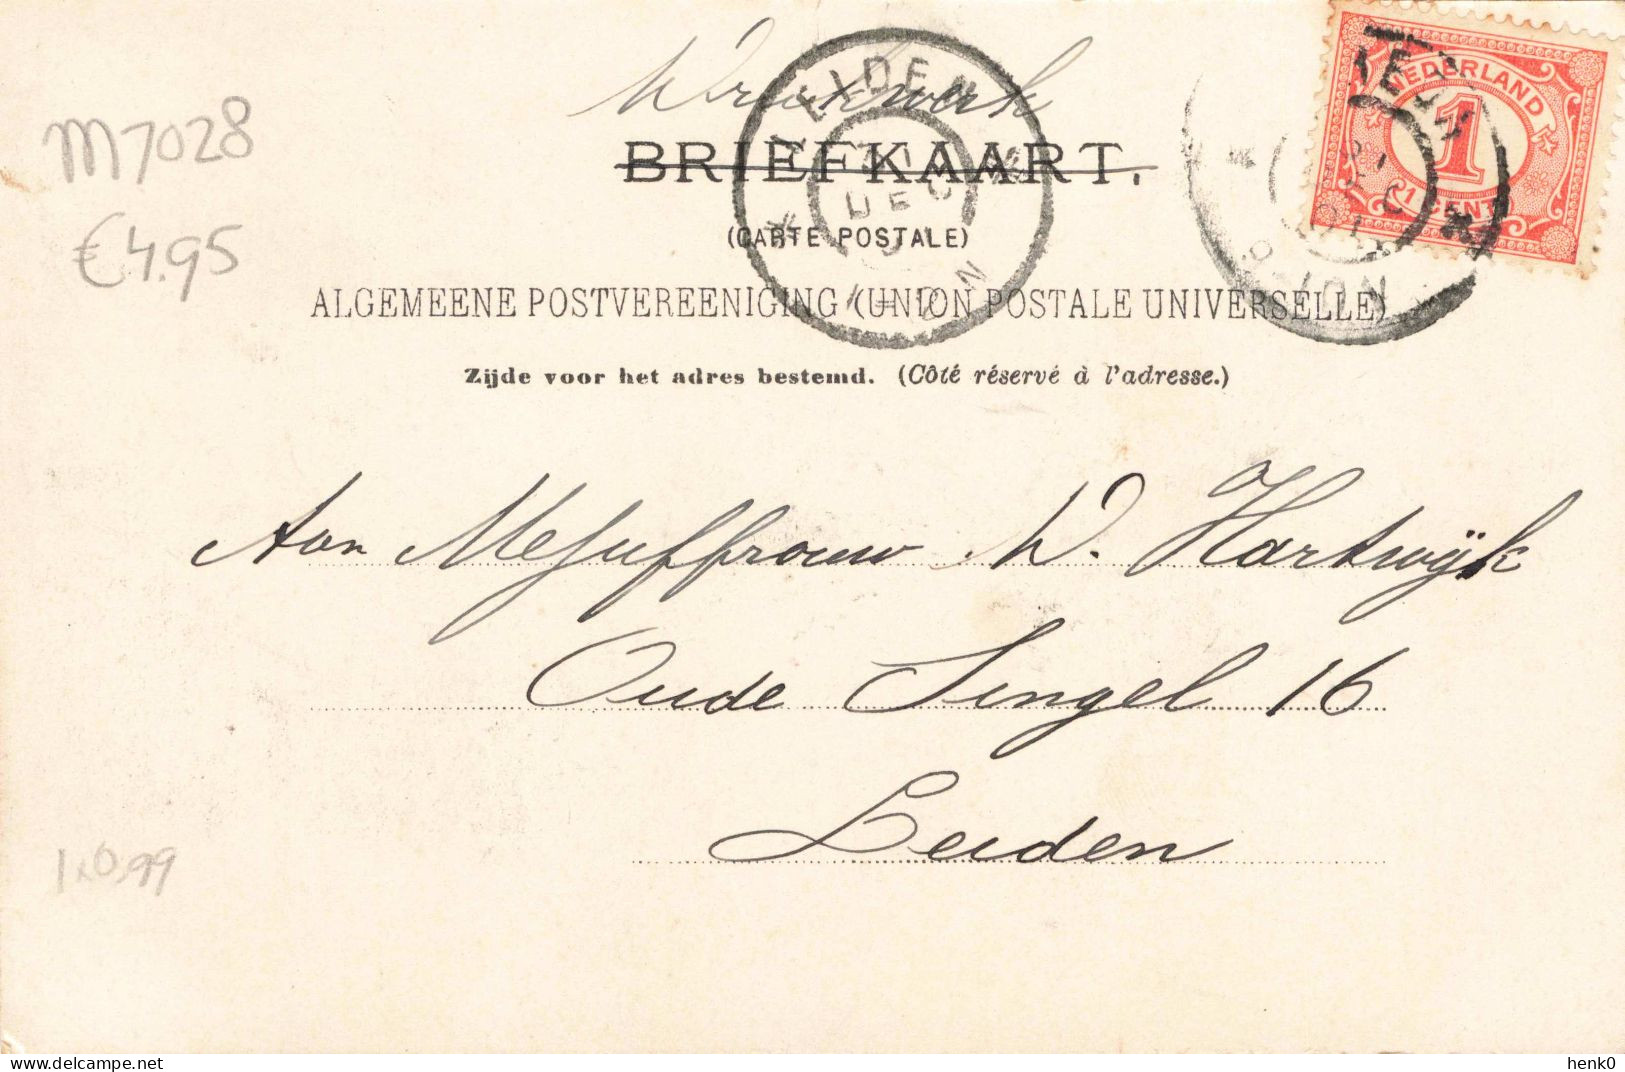 M7028
€4.95
LEIDEN
DEC
NEDERLAND
1
1 CENT
BRIEFKAART.
(CARTE POSTALE)
ALGEMEENE POSTVEREENIGING (UNION POSTALE UNIVERSELLE)
Zijde voor het adres bestemd. (Côté réservé à l'adresse.)
Aan Mejuffrouw W. Hartwijk
Oude Singel 16
Leiden
henk0